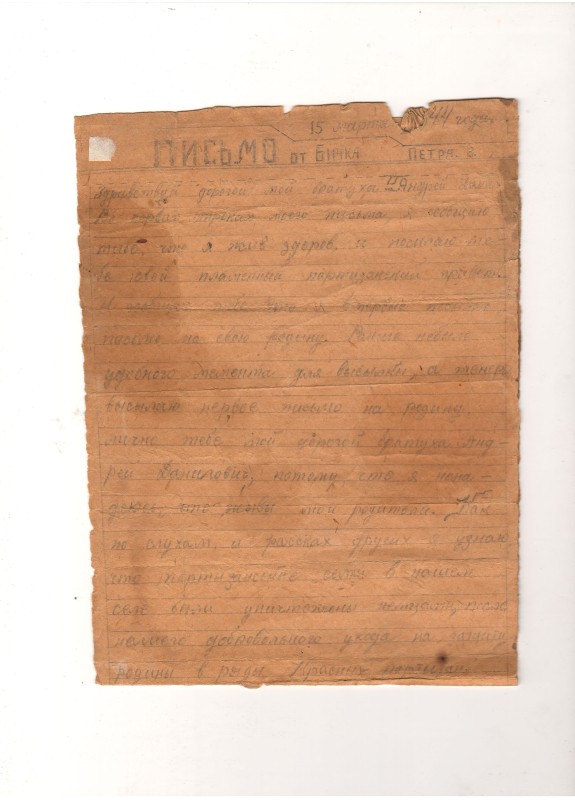 15 марта 44 года.
ПИСЬМО от БИЧКА ПЕТРА. Д
Здравствуй дорогой мой братуха Андрей
В первых строках моего письма, я сообщаю
тебе, что я жив здоров. и посылаю те-
бе свой пламенный партизанский привет.
И сообщаю тебе что я впервые посылаю
письмо на свою родину. Раньше небыло
удобного момента для высылки, а теперь
высылаю первое письмо на родину
лично тебе мой дорогой братуха Анд-
рей Данилович, потому, что я нена-
деюсь, что живы мои родители. Так
по слухам, и россказах других я узнаю
что партизанские семьи в нашем
селе были уничтожены немцами, после
нашего добровольного ухода на защиту
родини в ряды Красных партизан